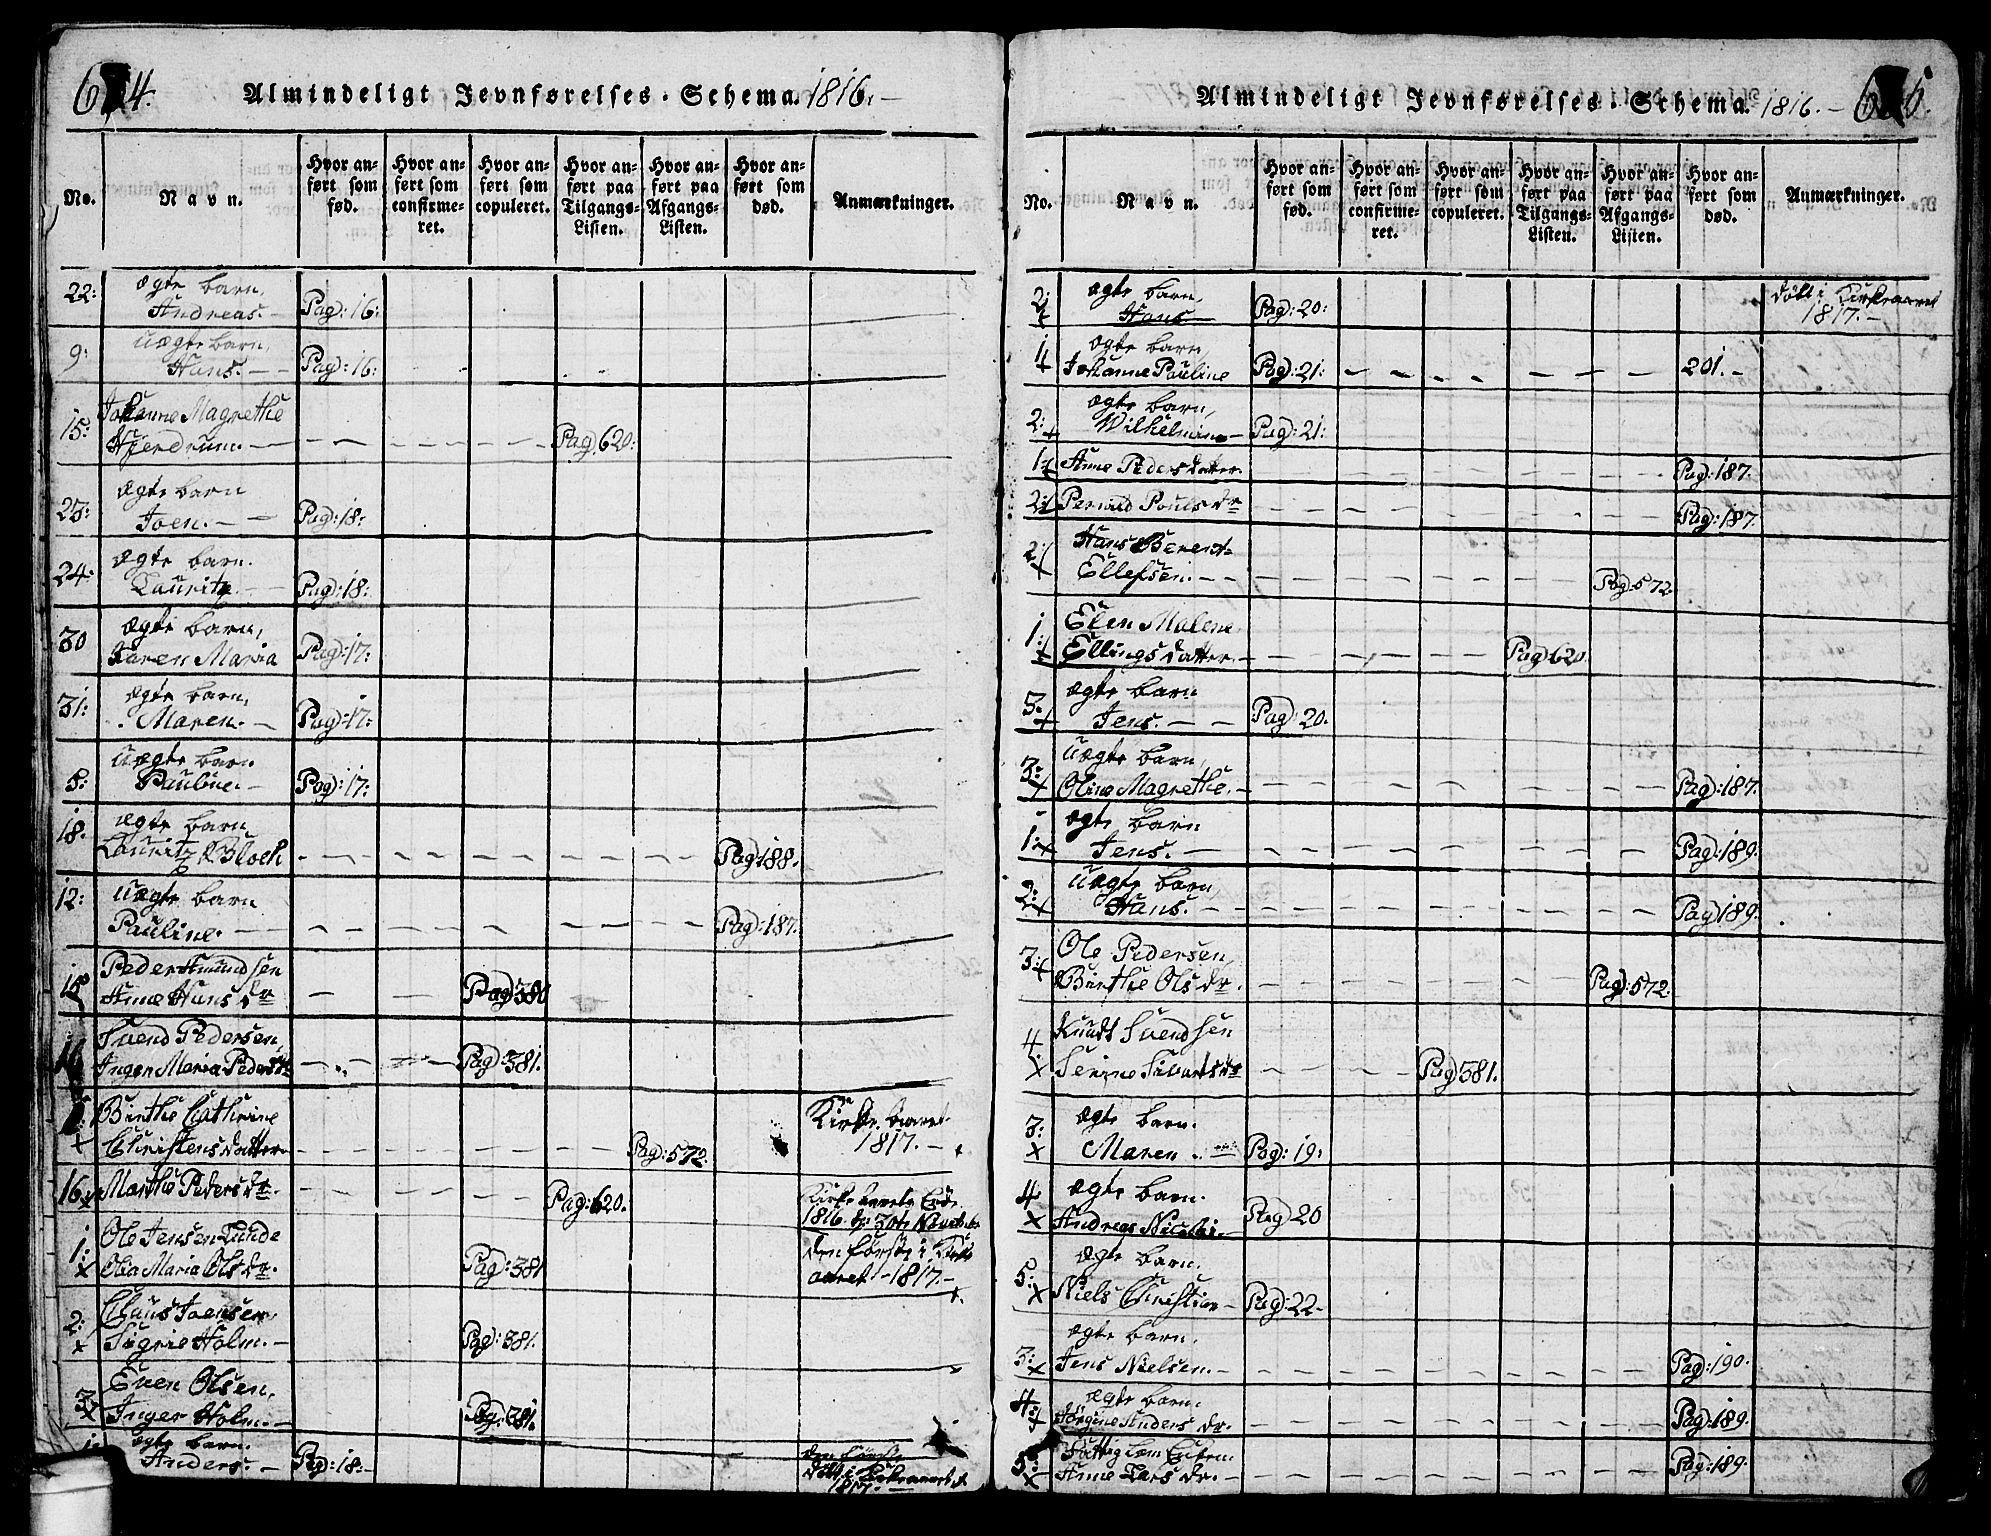 Almindeligt Jevnførelses-Schema. 1816.
No.
Navn.
Hvor anført som født.
Hvor anført som confirmeret.
Hvor anført som copuleret.
Hvor anført paa Tilgangs-Listen.
Hvor anført paa Afgangs-Listen.
Hvor anført som død.
Anmærkninger.
22: ægte barn,
Andreas. Pag: 16:
9: uægte barn,
Hans. Pag: 16:
15: Johanne Magrethe
Pag 620:
23: ægte barn
Joen. Pag: 18:
24: ægte barn.
Lauritz. Pag: 18:
30 ægte barn,
Karen Maria Pag: 17:
31: ægte barn,
Maren. Pag: 17:
8: uægte barn
Pauline. Pag: 17:
18. ægte barn
Lauritz Bloch Pag: 188.
12: uægte barn
Pauline. Pag: 187.
Peder Amundsen
15 Anne Hans dr Pag 380
Svend Pedersen,
16 Inger Maria Peders dr Pag 381.
Birthe Cathrine Kirke aaret
x Christensdatter Pag: 572. 1817.
16 x Marthe Peders dr. Pag: 620. Kirke aarets Ende
1816
Ole Jensen Lunde
1: x Olea Maria Ols dr. Pag: 381 den første i Kirke
aaret 1817.
2: Claus Joensen,
x Sigrie Holm. Pag: 381.
Even Olsen,
3 x Inger Holm. Pag: 381.
1: ægte barn.
Anders. Pag: 18: den første
døbt i Kirkeaaret
1817.
Almindeligt Jevnførelses-Schema. 1816.
No.
Navn.
Hvor anført som fød.
Hvor anført som confirmeret.
Hvor anført som copuleret.
Hvor anført paa Tilgangs-Listen.
Hvor anført paa Afgangs-Listen.
Hvor anført som død.
Anmærkninger.
2 x ægte barn,
Hans Pag: 20: døbt i Kirkeaaret
1817.
1 x ægte barn,
Johanne Pauline Pag: 21: 201.
2: x ægte barn,
Wilhelmine Pag: 21:
1 x Anne Pedersdatter. Pag: 187
2 x Pernild Pouls dr Pag: 187.
2: x Hans Berent
Ellefsen. Pag 572.
1 x Elen Malene
Ellingsdatter Pag 620
3. x ægte barn
Jens. Pag: 20.
3: x uægte barn,
Oline Magrethe. Pag: 187.
1: x ægte barn
Jens. Pag: 189.
2: x uægte barn,
Hans. Pag 189.
3: x Ole Pedersen,
Birthe Ols dr. Pag: 572.
4 Knudt Svendsen
x Serine Sivarts dr Pag 381.
3: ægte barn.
x Maren. Pag: 19:
4 ægte barn.
x Andreas Nicolai. Pag 20
5: ægte barn.
x Niels Christian Pag: 22
3: ægte barn.
x Jens Nielsen. Pag: 190.
4: ægte barn.
x Jørgine Anders dr. Pag: 189.
5: Fattig Lem Enken
x Anne Lars dr. Pag: 189.